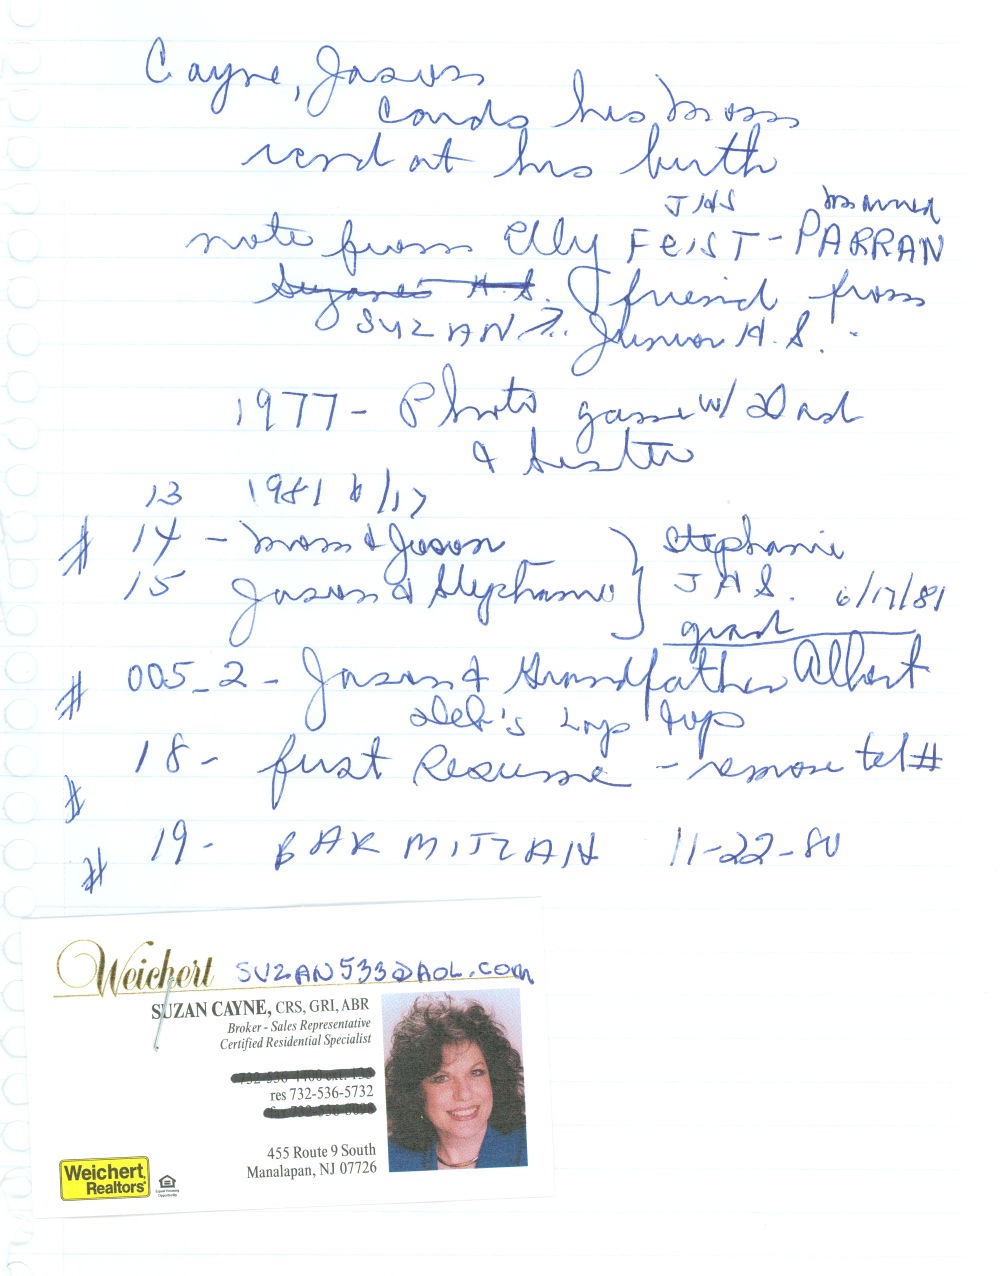 Cayne, Jason
cards his mom
read at his birth
JHS married
note from Elly FEIST - PARRAN
Suzane's H.S. friend from
SUZAN Junior H.S.
1977 - Photo game w/ Dad
& sister
13 1981 6/17
# 14 - mom & Jason Stephanie
15 Jason & Stephanie J H S. 6/17/81
grad
# 005_2 - Jason & Grandfather Albert
Deb's Lap top
# 18 - first Resume - remove tel #
# 19 - BAR MITZAH 11-22-80
Weichert SUZAN533@AOL.COM
SUZAN CAYNE, CRS, GRI, ABR
Broker - Sales Representative
Certified Residential Specialist
res 732-536-5732
455 Route 9 South
Manalapan, NJ 07726
Weichert,
Realtors®
Equal Housing
Opportunity